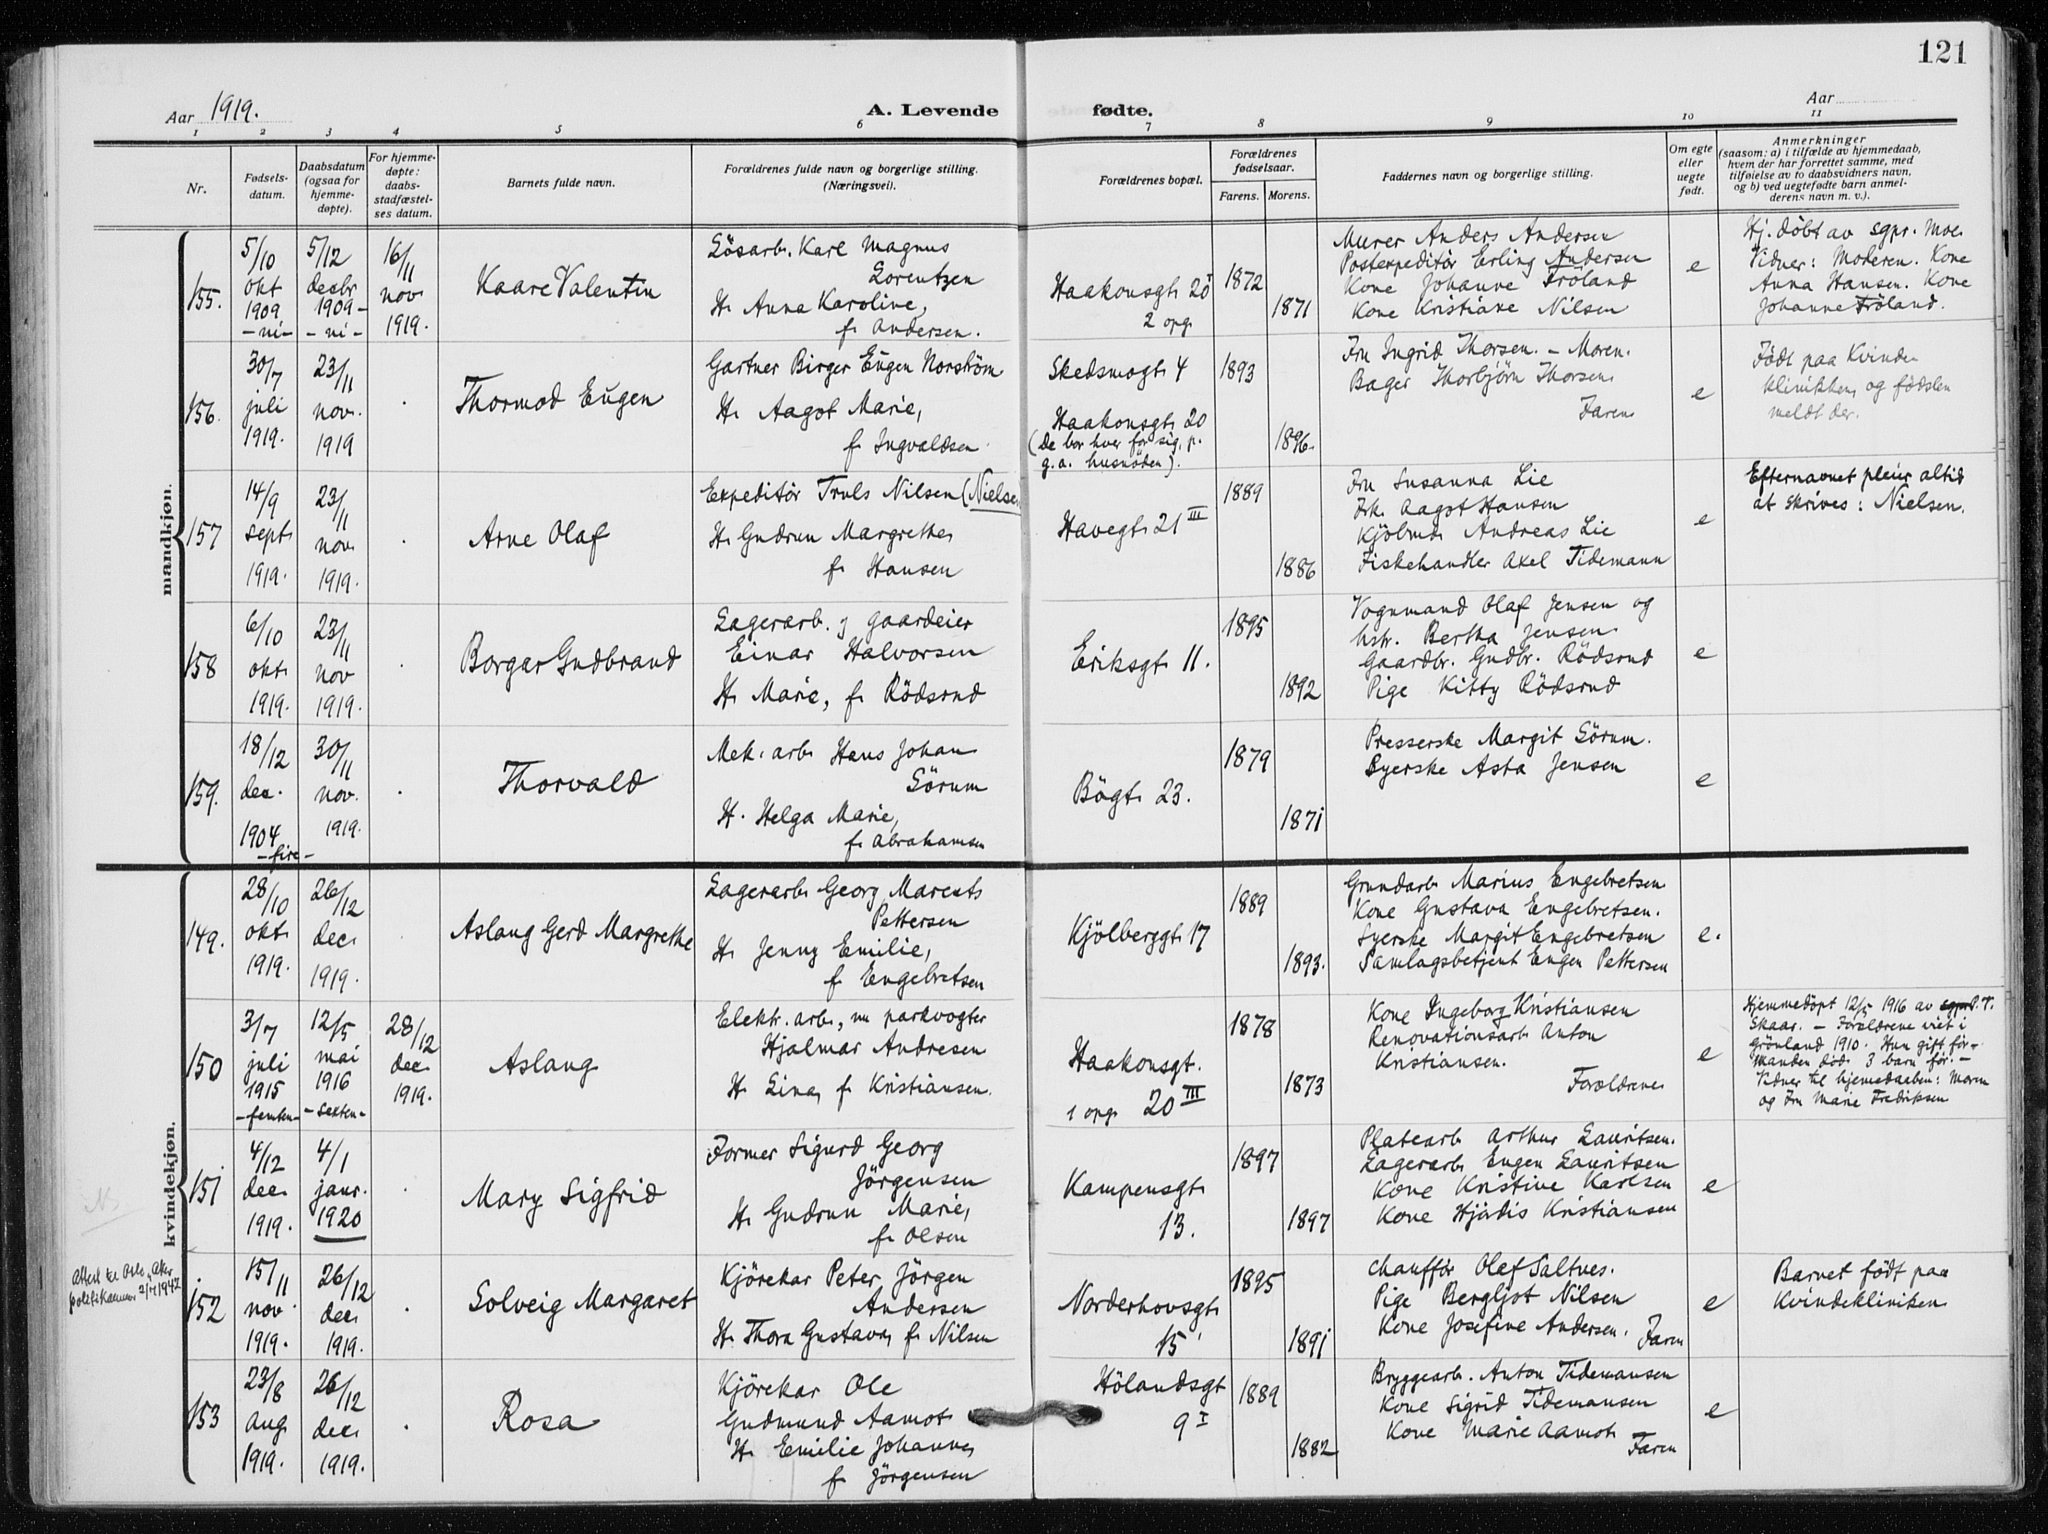 121
Aar 1919.
A. Levende fødte.
Aar
1 2 3 4 5 6 7 8 9 10 11
Nr.
Fødsels-
datum.
Daabsdatum
(ogsaa for
hjemme-
døpte).
For hjemme-
døpte:
daabs-
stadfæstel-
ses datum.
Barnets fulde navn.
Forældrenes fulde navn og borgerlige stilling.
(Næringsvei).
Forældrenes bopæl.
Forældrenes
fødselsaar.
Farens. Morens.
Faddernes navn og borgerlige stilling.
Om egte
eller
uegte
født.
Anmerkninger
(saasom: a) i tilfælde av hjemmedaab,
hvem der har forrettet samme, med
tilføielse av to daabsvidners navn,
og b) ved uegtefødte barn anmel-
derens navn m. v.).
mandkjøn.
155.
5/10
okt
1909
-ni-
5/12
decbr
1909-
-ni-
16/11
nov
1919.
Kaare Valentin
Løsarb. Karl Magnus
Lorentzen
H. Anna Karoline,
f. Andersen.
Haakonsgt. 20 I
2 opg.
1872
1871
Murer Anders Andersen
Postexpeditör Erling Andersen
Kone Johanne Fröland
Kone Kristiane Nilsen
e
Hj. döbt av sgpr. Moe.
Vidner: Moderen. Kone
Anna Hansen. Kone
Johanne Fröland.
156.
30/7
juli
1919.
23/11
nov.
1919
Thormod Eugen
Gartner Birger Eugen Norström
H. Aagot Marie,
f. Ingvaldsen.
Skedsmogt. 4
Haakonsgt. 20
(De bor hver for sig. p.
g. a. husnöden).
1893
1896.
Fru Ingrid Thorsen. - Moren.
Bager Thorbjörn Thorsen
Faren
e
Födt paa Kvinde-
klinikken, og födslen
meldt der.
157
14/9
sept.
1919.
23/11
nov.
1919.
Arne Olaf
Expeditör Truls Nilsen (Nielsen
H. Gudrun Margrethe
f. Hansen
Havegt. 21 III
1889
1886
Fru Susanna Lie
Frk. Aagot Hansen
Kjöbmd. Andreas Lie
Fiskehandler Axel Tidemann
e
Efternavnet pleier altid
at skrives: Nielsen.
158
6/10
okt.
1919.
23/11
nov
1919.
Borgar Gudbrand
Lagerarb. og gaardeier
Einar Halvorsen
H. Marie, f. Rödsrud
Eriksgt. 11.
1895
1892
Vognmand Olaf Jensen og
hstr. Bertha Jensen
Gaardbr. Gudbr. Rödsrud
Pige Kitty Rödsrud
e
159.
18/12
dec.
1904
-fire-
30/11
nov.
1919.
Thorvald
Mek. arb. Hans Johan
Sörum
H. Helga Marie,
f. Abrahamsen
Bögt. 23.
1879
1871
Presserske Margit Sörum.
Syerske Asta Jensen
e
kvindekjøn.
149.
28/10
okt.
1919.
26/12
dec.
1919.
Aslaug Gerd Margrethe
Lagerarb. Georg
Pettersen
H. Jenny Emilie,
f. Engebretsen
Kjölberggt. 17
1889
1893.
Grundarb. Marius Engebretsen
Kone Gustava Engebretsen.
Syerske Margit Engebretsen
Samlagsbetjent Eugen Pettersen
e.
150
3/7
juli
1915
-femten-
12/5
mai
1916
-sexten-
28/12
dec.
1919.
Aslaug
Elektr. arb., nu parkvogter
Hjalmar Andresen
H. Lina, f. Kristiansen.
Haakonsgt.
1 opg. 20 III
1878
1873
Kone Ingeborg Kristiansen
Renovationsarb. Anton
Kristiansen.
Forældrene
e
Hjemmedöpt 12/5 1916 av sgpr. P. T.
Skaar. - Forældrene viet i
Grönland 1910. Hun gift för-
Manden död. 3 barn för. -
Vidner til hjemmedaaben: Moren
og Fru Marie Fredriksen
151
4/12
dec.
1919.
4/1
janr.
1920
Mary Sigfrid
Former Sigurd Georg
Jörgensen
H. Gudrun Marie,
f. Olsen
Kampensgt.
13.
1897
1897
Platearb. Arthur Lauritsen.
Lagerarb. Eugen Lauritsen
Kone Kristine Karlsen
Kone Hjördis Kristiansen
e
Attest til Oslo, Aker
politikammer 2/7 1942
152
15/11
nov.
1919.
26/12
dec.
1919.
Solveig Margaret
Kjörekar Peter Jörgen
Andersen
H. Thora Gustava, f. Nilsen
Norderhovsgt.
15
1895
1891
Chaufför Olef Saltnes.
Pige Bergljot Nilsen
Kone Josefine Andersen. Faren
e
Barnet födt paa
Kvindekliniken
153
23/8
aug.
1919.
26/12
dec.
1919.
Rosa
Kjörekar Ole
Gudmund Aamot
H. Emilie Johanne,
f. Jörgensen
Hölandsgt
9 I
1889
1882
Bryggearb. Anton Tidemansen
Kone Sigrid Tidemansen
Kone Marie Aamot.
Faren
e